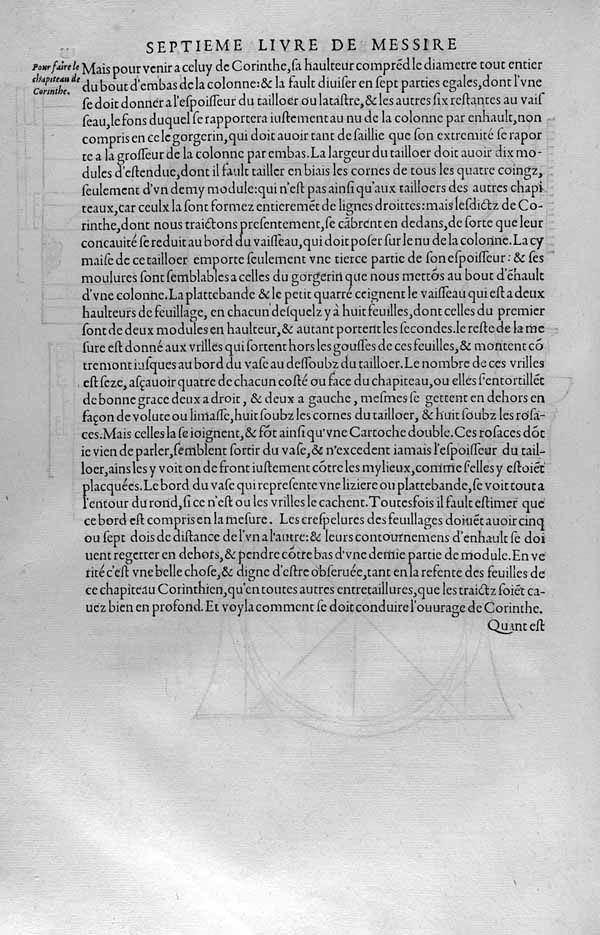 SEPTIEME LIVRE DE MESSIRE
Pour faire le
chapiteau de
Corinthe.
Mais pour venir a celuy de Corinthe, sa haulteur comprẽd le diametre tout entier
du bout d'embas de la colonne: & la fault diuiser en sept parties egales, dont l'vne
se doit donner a l'espoisseur du tailloer ou latastre, & les autres six restantes au vais
seau, le fons duquel se rapportera iustement au nu de la colonne par enhault, non
compris en ce le gorgerin, qui doit auoir tant de saillie que son extremité se rapor
te a la grosseur de la colonne par embas. La largeur du tailloer doit auoir dix mo-
dules d'estendue, dont il fault tailler en biais les cornes de tous les quatre coingz,
seulement d'vn demy module: qui n'est pas ainsi qu'aux tailloers des autres chapi
teaux, car ceulx la sont formez entieremẽt de lignes droittes: mais lesdictz de Co-
rinthe, dont nous traictons presentement, se cãbrent en dedans, de sorte que leur
concauité se reduit au bord du vaisseau, qui doit poser sur le nu de la colonne. La cy
maise de ce tailloer emporte seulement vne tierce partie de son espoisseur: & ses
moulures sont semblables a celles du gorgerin que nous mettõs au bout d'ẽhault
d'vne colonne. La plattebande & le petit quarré ceignent le vaisseau qui est a deux
haulteurs de feuillage, en chacun desquelz y à huit feuilles, dont celles du premier
sont de deux modules en haulteur, & autant portent les secondes. le reste de la me
sure est donné aux vrilles qui sortent hors les gousses de ces feuilles, & montent cõ
tremont iusques au bord du vase au dessoubz du tailloer. Le nombre de ces vrilles
est seze, asçauoir quatre de chacun costé ou face du chapiteau, ou elles s'entortillẽt
de bonne grace deux a droit, & deux a gauche, mesmes se gettent en dehors en
façon de volute ou limasse, huit soubz les cornes du tailloer, & huit soubz les rosa-
ces. Mais celles la se ioignent, & fõt ainsi qu'vne Cartoche double. Ces rosaces dõt
ie vien de parler, semblent sortir du vase, & n'excedent iamais l'espoisseur du tail-
loer, ains les y voit on de front iustement cõtre les mylieux, comme s'elles y estoiẽt
placquées. Le bord du vase qui represente vne liziere ou plattebande, se voit tout a
l'entour du rond, si ce n'est ou les vrilles le cachent. Toutesfois il fault estimer que
ce bord est compris en la mesure. Les crespelures des feuillages doiuẽt auoir cinq
ou sept dois de distance de l'vn a l'autre: & leurs contournemens d'enhault se doi
uent regetter en dehors, & pendre cõtre bas d'vne demie partie de module. En ve
rité c'est vne belle chose, & digne d'estre obseruée, tant en la refente des feuilles de
ce chapiteau Corinthien, qu'en toutes autres entretaillures, que les traictz soiẽt ca-
uez bien en profond. Et voyla comment se doit conduire l'ouurage de Corinthe.
Quant est